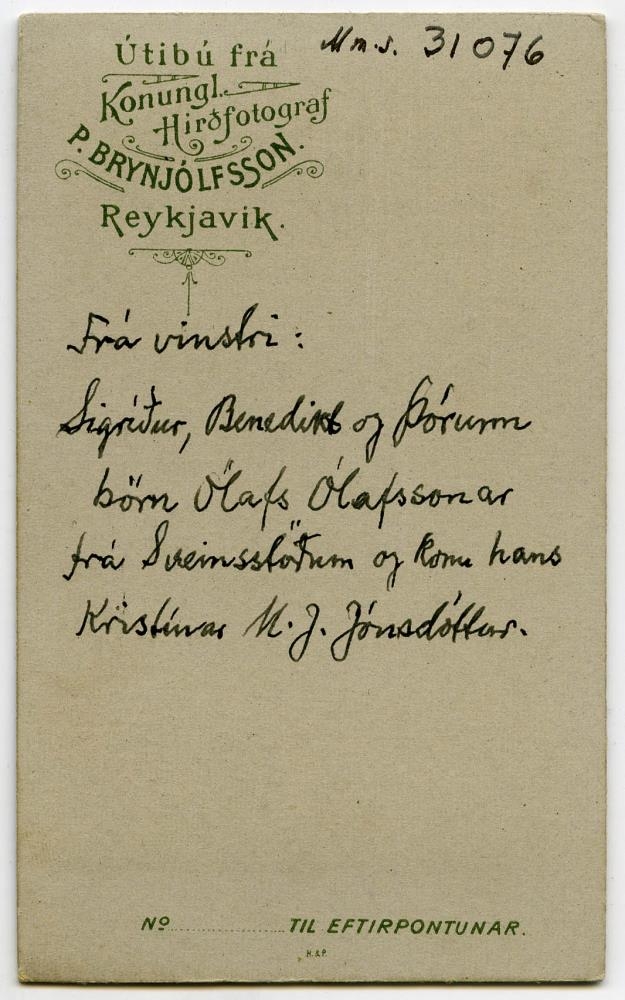 Mms. 31076
Útibú frá
Konungl.
Hirðfotograf
P. BRYNJÓLFSSON.
Reykjavik.
Frá vinstri:
Sigríður, Benedikt og Þórunn
börn Ólafs Ólafssonar
frá Sveinsstöðum og konu hans
Kristínar M. J. Jónsdóttur.
No TIL EFTIRPONTUNAR.
H. & P.